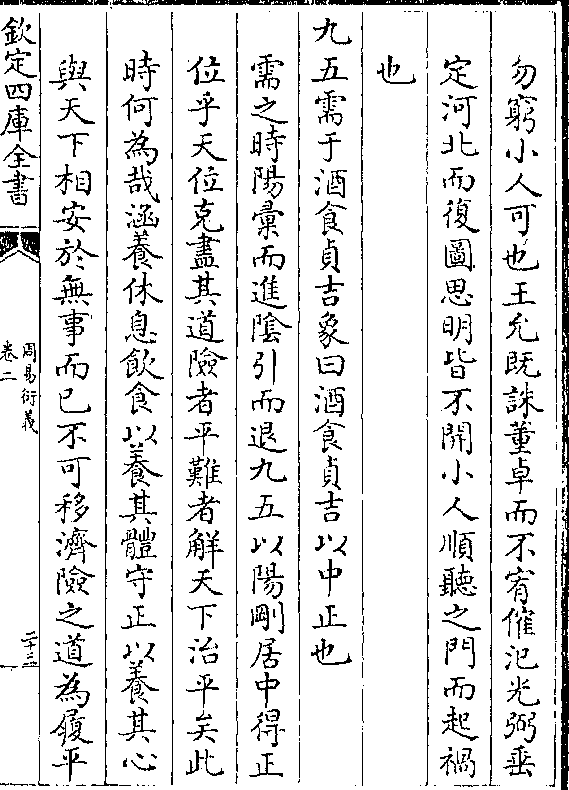 勿窮小人可也王允既誅董卓而不宥傕汜光弼垂
定河北而復圖思明皆不開小人順聽之門而起禍
也
九五需于酒食貞吉象曰酒食貞吉以中正也
需之時陽彚而進隂引而退九五以陽剛居中得正
位乎天位克盡其道險者平難者解天下治平矣此
時何為哉涵養休息飲食以養其體守正以養其心
與天下相安於無事而已不可移濟險之道為履平
欽定四庫全書
周易衍義
卷二
二十三